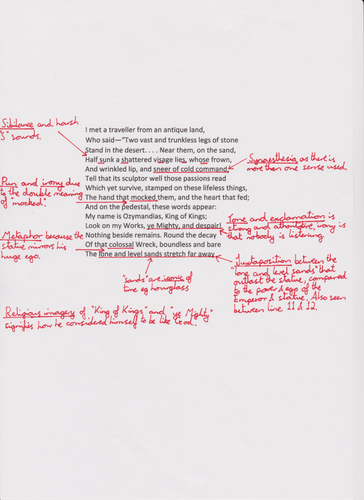 Sibilance and harsh
"S" sounds.
Pun and irony due
to the double meaning
of "mocked".
Metaphor because the
statue mirrors his
huge ego.
I met a traveller from an antique land,
Who said—"Two vast and trunkless legs of stone
Stand in the desert. . . . Near them, on the sand,
Half sunk a shattered visage lies, whose frown,
And wrinkled lip, and sneer of cold command,
Tell that its sculptor well those passions read
Which yet survive, stamped on these lifeless things,
The hand that mocked them, and the heart that fed;
And on the pedestal, these words appear:
My name is Ozymandias, King of Kings;
Look on my Works, ye Mighty, and despair!
Nothing beside remains. Round the decay
Of that colossal Wreck, boundless and bare
The lone and level sands stretch far away
Synapthesia as there is
more then one sense used.
Tone and exclamation is
strong and athoritive, irony is
that nobody is listening.
Juxtaposition between the
"lone and level sands" that
outlast the statue, compared
to the power & ego of the
Emperor & statue. Also seen
between line 11 & 12.
"sands" are iconic of
time eg hourglass
Religious imagery of "King of Kings" and "ye Mighty"
signifys how he considered himself to be like God.